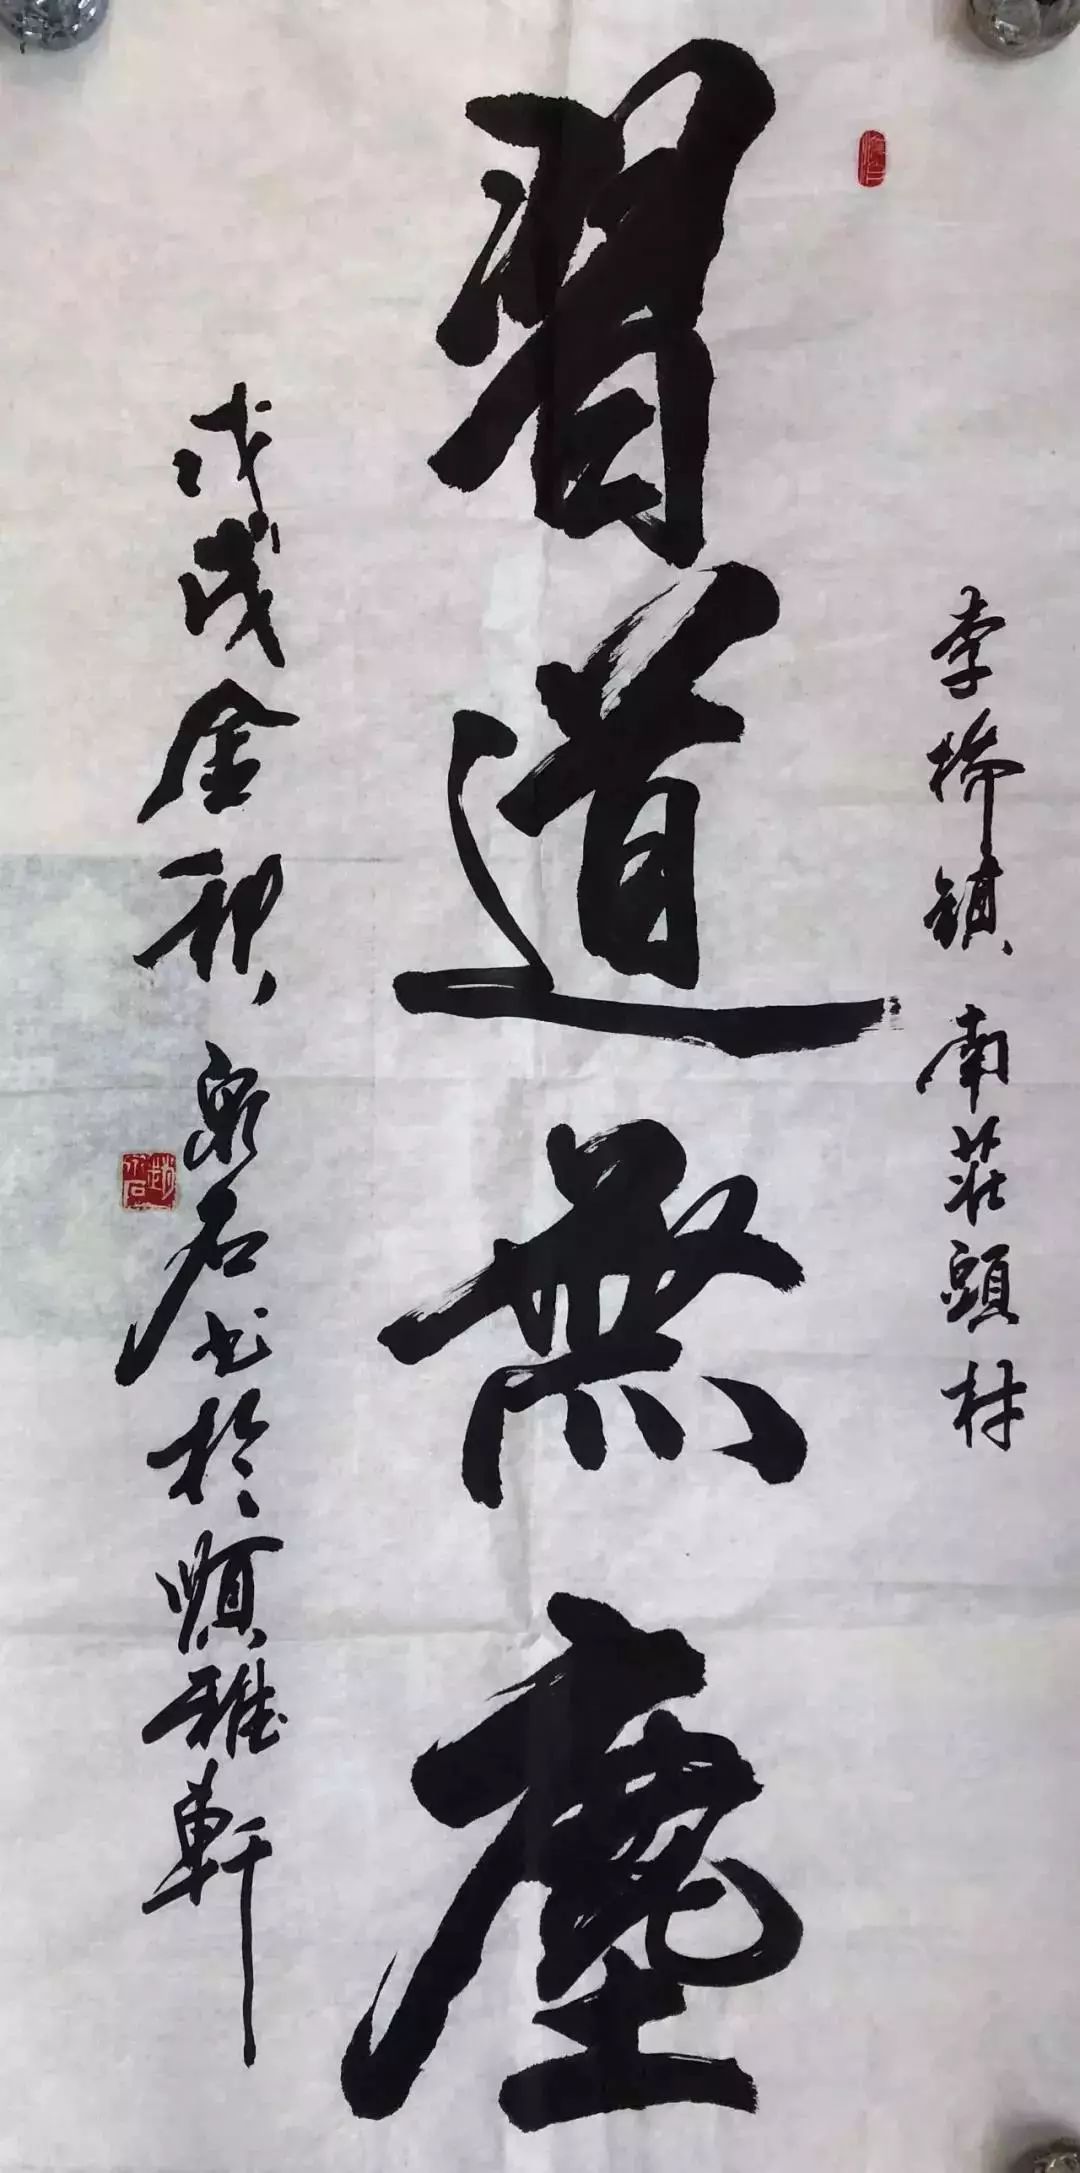 李桥镇 南莊頭村
習道無塵
戊戌金秋 泉石书於順雅軒